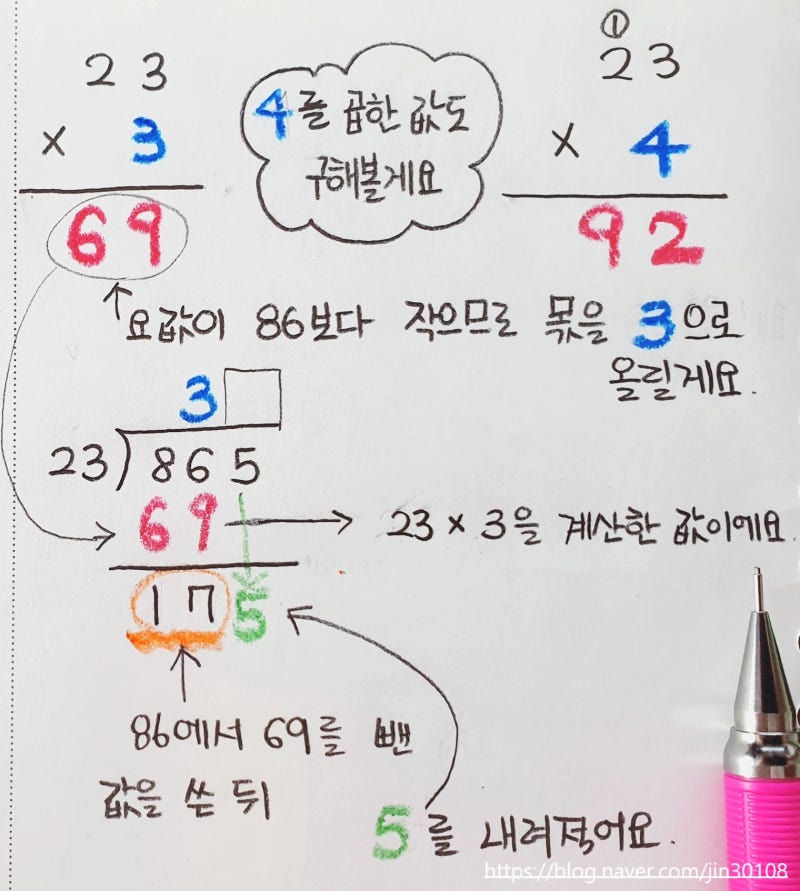 23
× 3
69
4를 곱한 값도
구해볼게요
①
23
× 4
92
요값이 86보다 작으므로 몫을 3으로
올릴게요.
3
23)865
69 → 23 × 3을 계산한 값이에요
175
86에서 69를 뺀
값을 쓴 뒤
5를 내려적어요.
https://blog.naver.com/jin30108